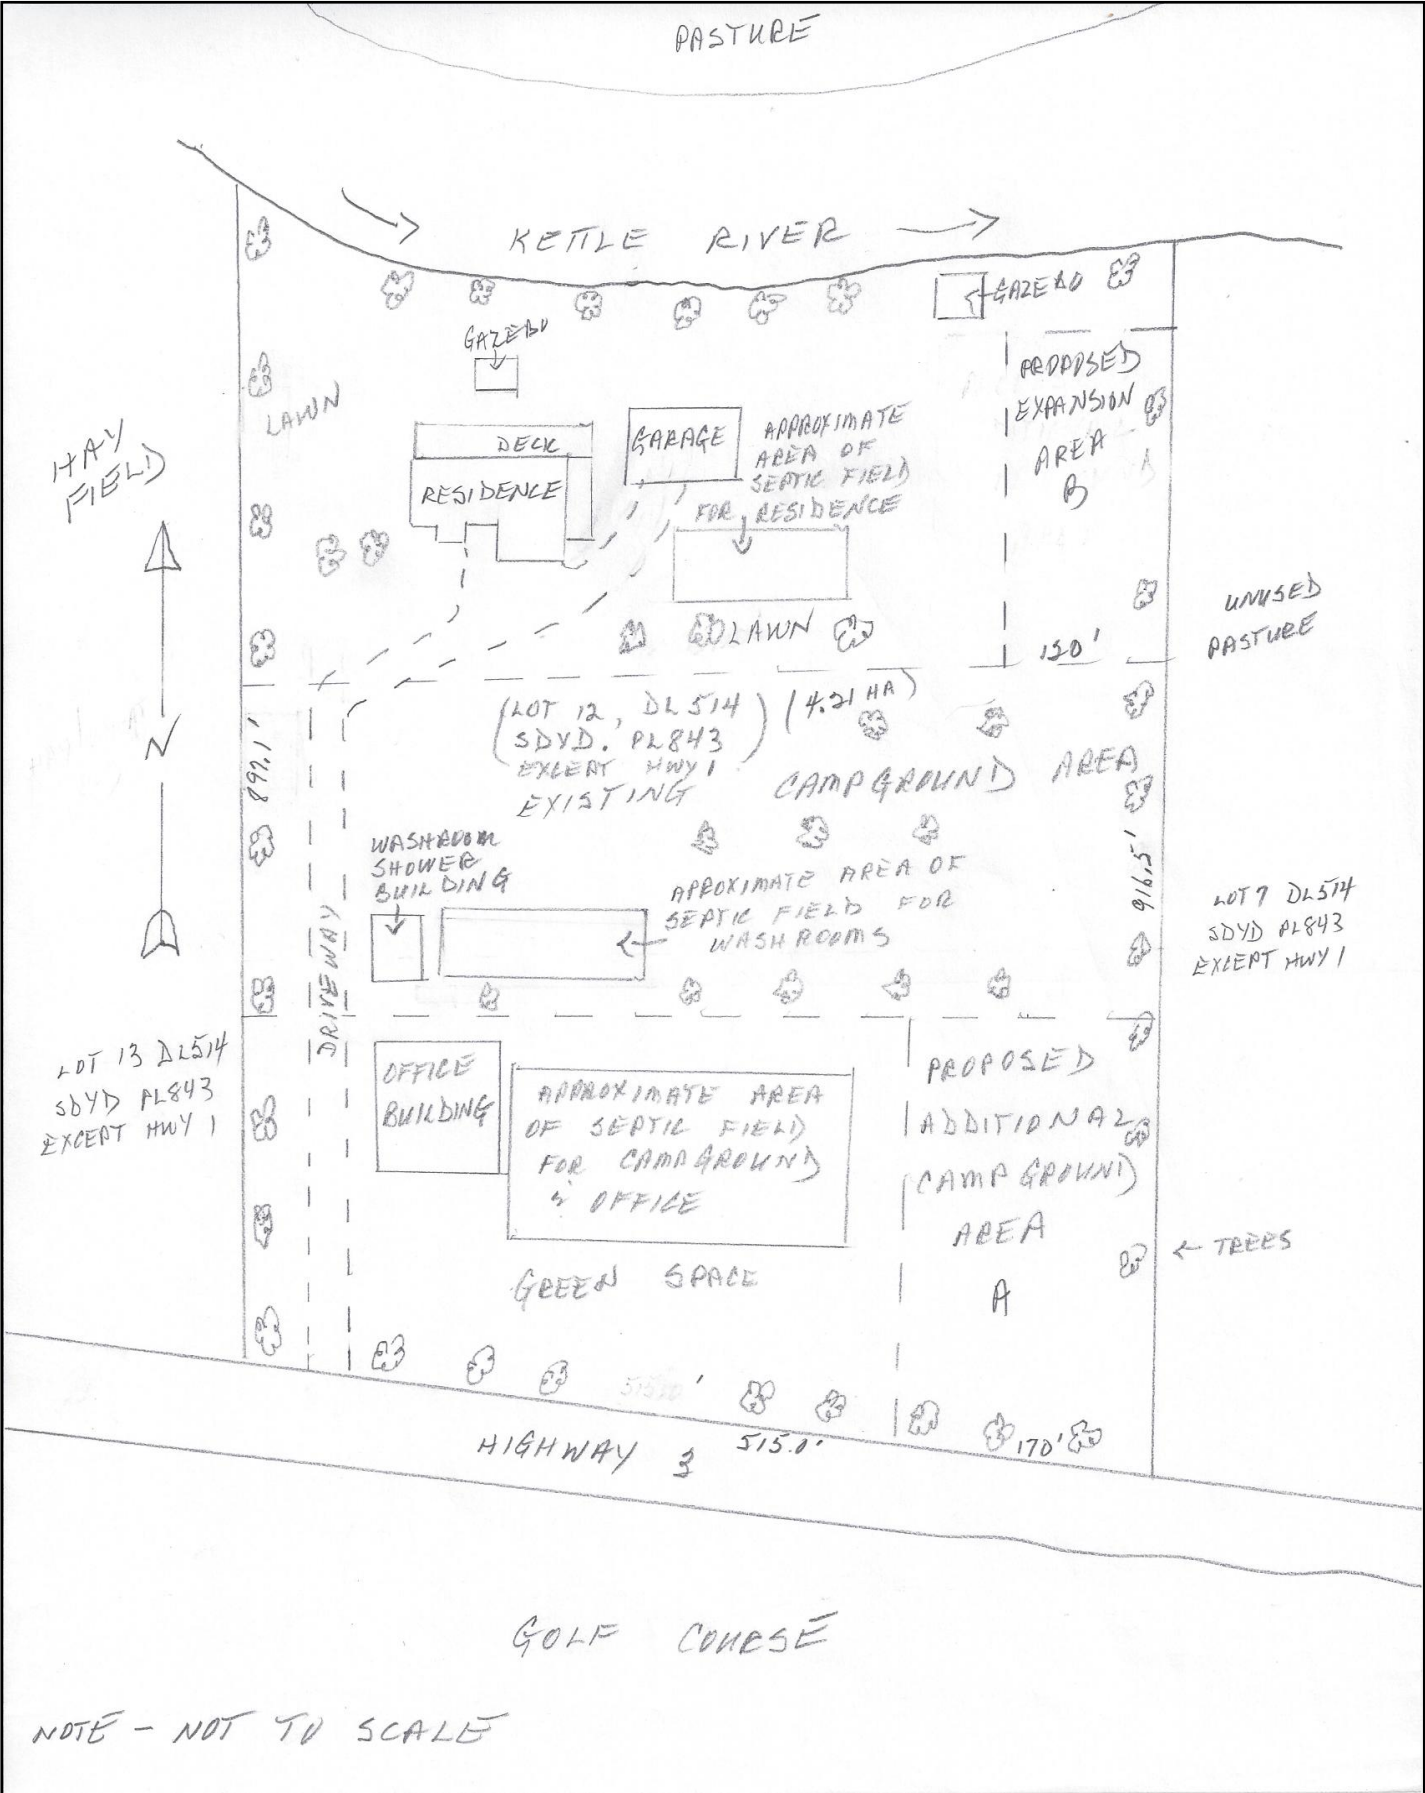 PASTURE
KETTLE RIVER
GAZEBO
GAZEBO
PROPOSED
EXPANSION
AREA
B
LAWN
HAY
FIELD
DECK
RESIDENCE
GARAGE
APPROXIMATE
AREA OF
SEPTIC FIELD
FOR RESIDENCE
LAWN
120'
UNUSED
PASTURE
(LOT 12, DL514) (4.21 HA)
SDYD. PL843
EXCEPT HWY 1
EXISTING CAMPGROUND AREA
N
899.1'
WASHROOM
SHOWER
BUILDING
APROXIMATE AREA OF
SEPTIC FIELD FOR
WASHROOMS
916.5'
LOT 7 DL514
SDYD PL843
EXCEPT HWY 1
DRIVEWAY
LOT 13 DL514
SDYD PL843
EXCEPT HWY 1
OFFICE
BUILDING
APPROXIMATE AREA
OF SEPTIC FIELD
FOR CAMPGROUND
& OFFICE
PROPOSED
ADDITIONAL
CAMPGROUND
AREA
A
← TREES
GREEN SPACE
HIGHWAY 3
515.0'
170'
GOLF COURSE
NOTE - NOT TO SCALE